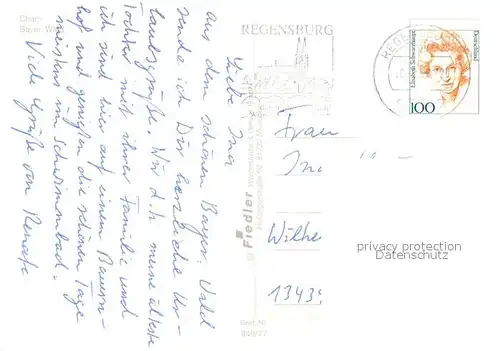 Cham
Bayer. Wald
Liebe Ina
Aus dem schönen Bayer. Wald
sende ich Dir herzliche Ur-
laubsgrüße. Wir d.h. meine älteste
Tochter mit ihrer Familie und
ich sind hier auf einem Bauern-
hof und genießen die schönen Tage
meistens im Schwimmbad.
Viele Grüße von Renate
Fiedler
Best.-Nr.
REGENSBURG
REGENSBURG
Elisabeth Schwarzhaupt
Deutschland
100
Frau
Ina
Wilhe
13439
privacy protection
Datenschutz